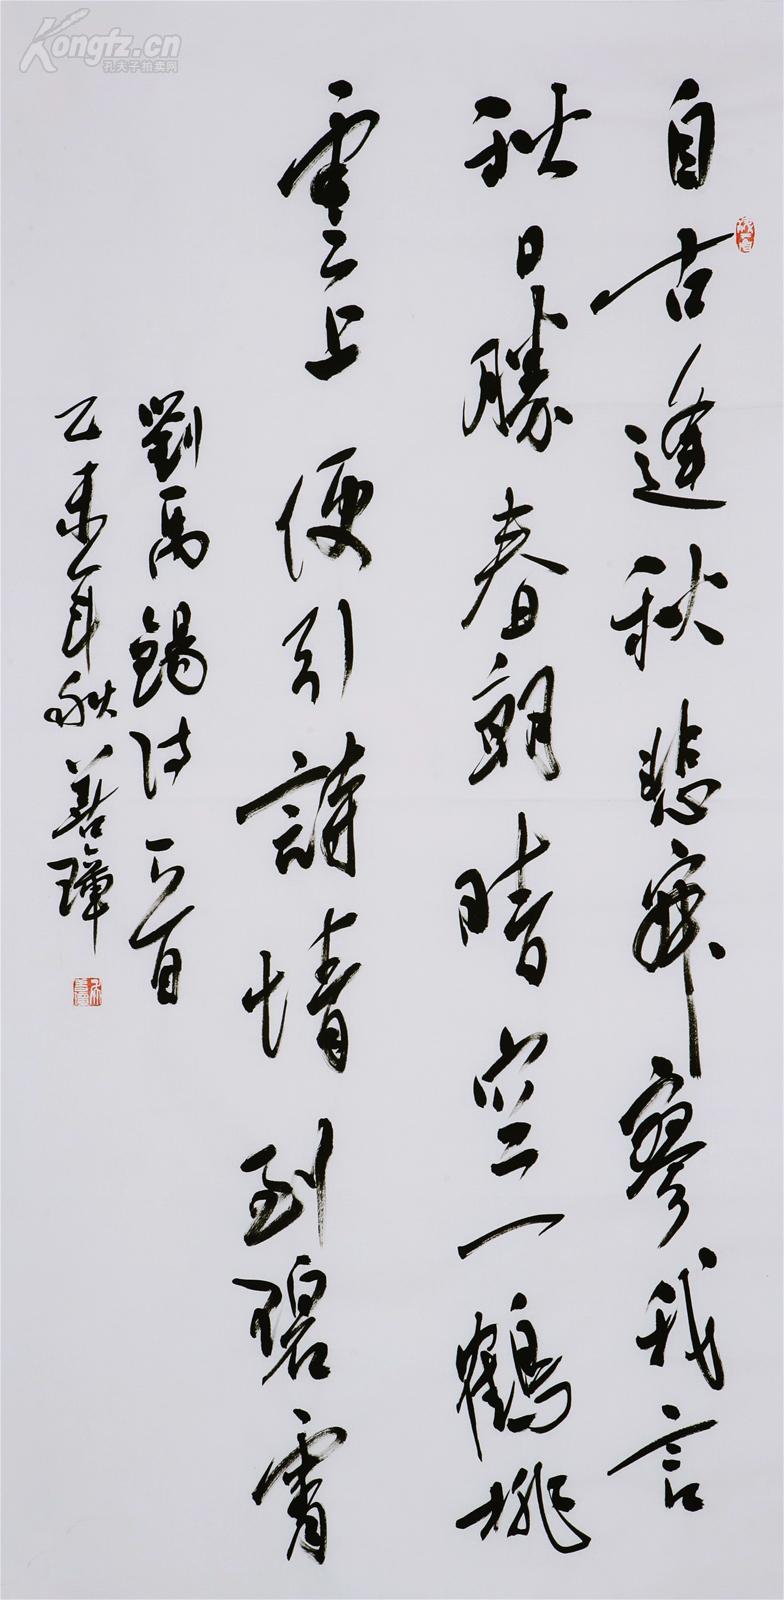 Kongfz.cn
孔夫子拍卖网
自古逢秋悲寂寥我言
秋日勝春朝晴空一鶴排
雲上便引詩情到碧霄
劉禹錫诗一首
乙未年秋善璋